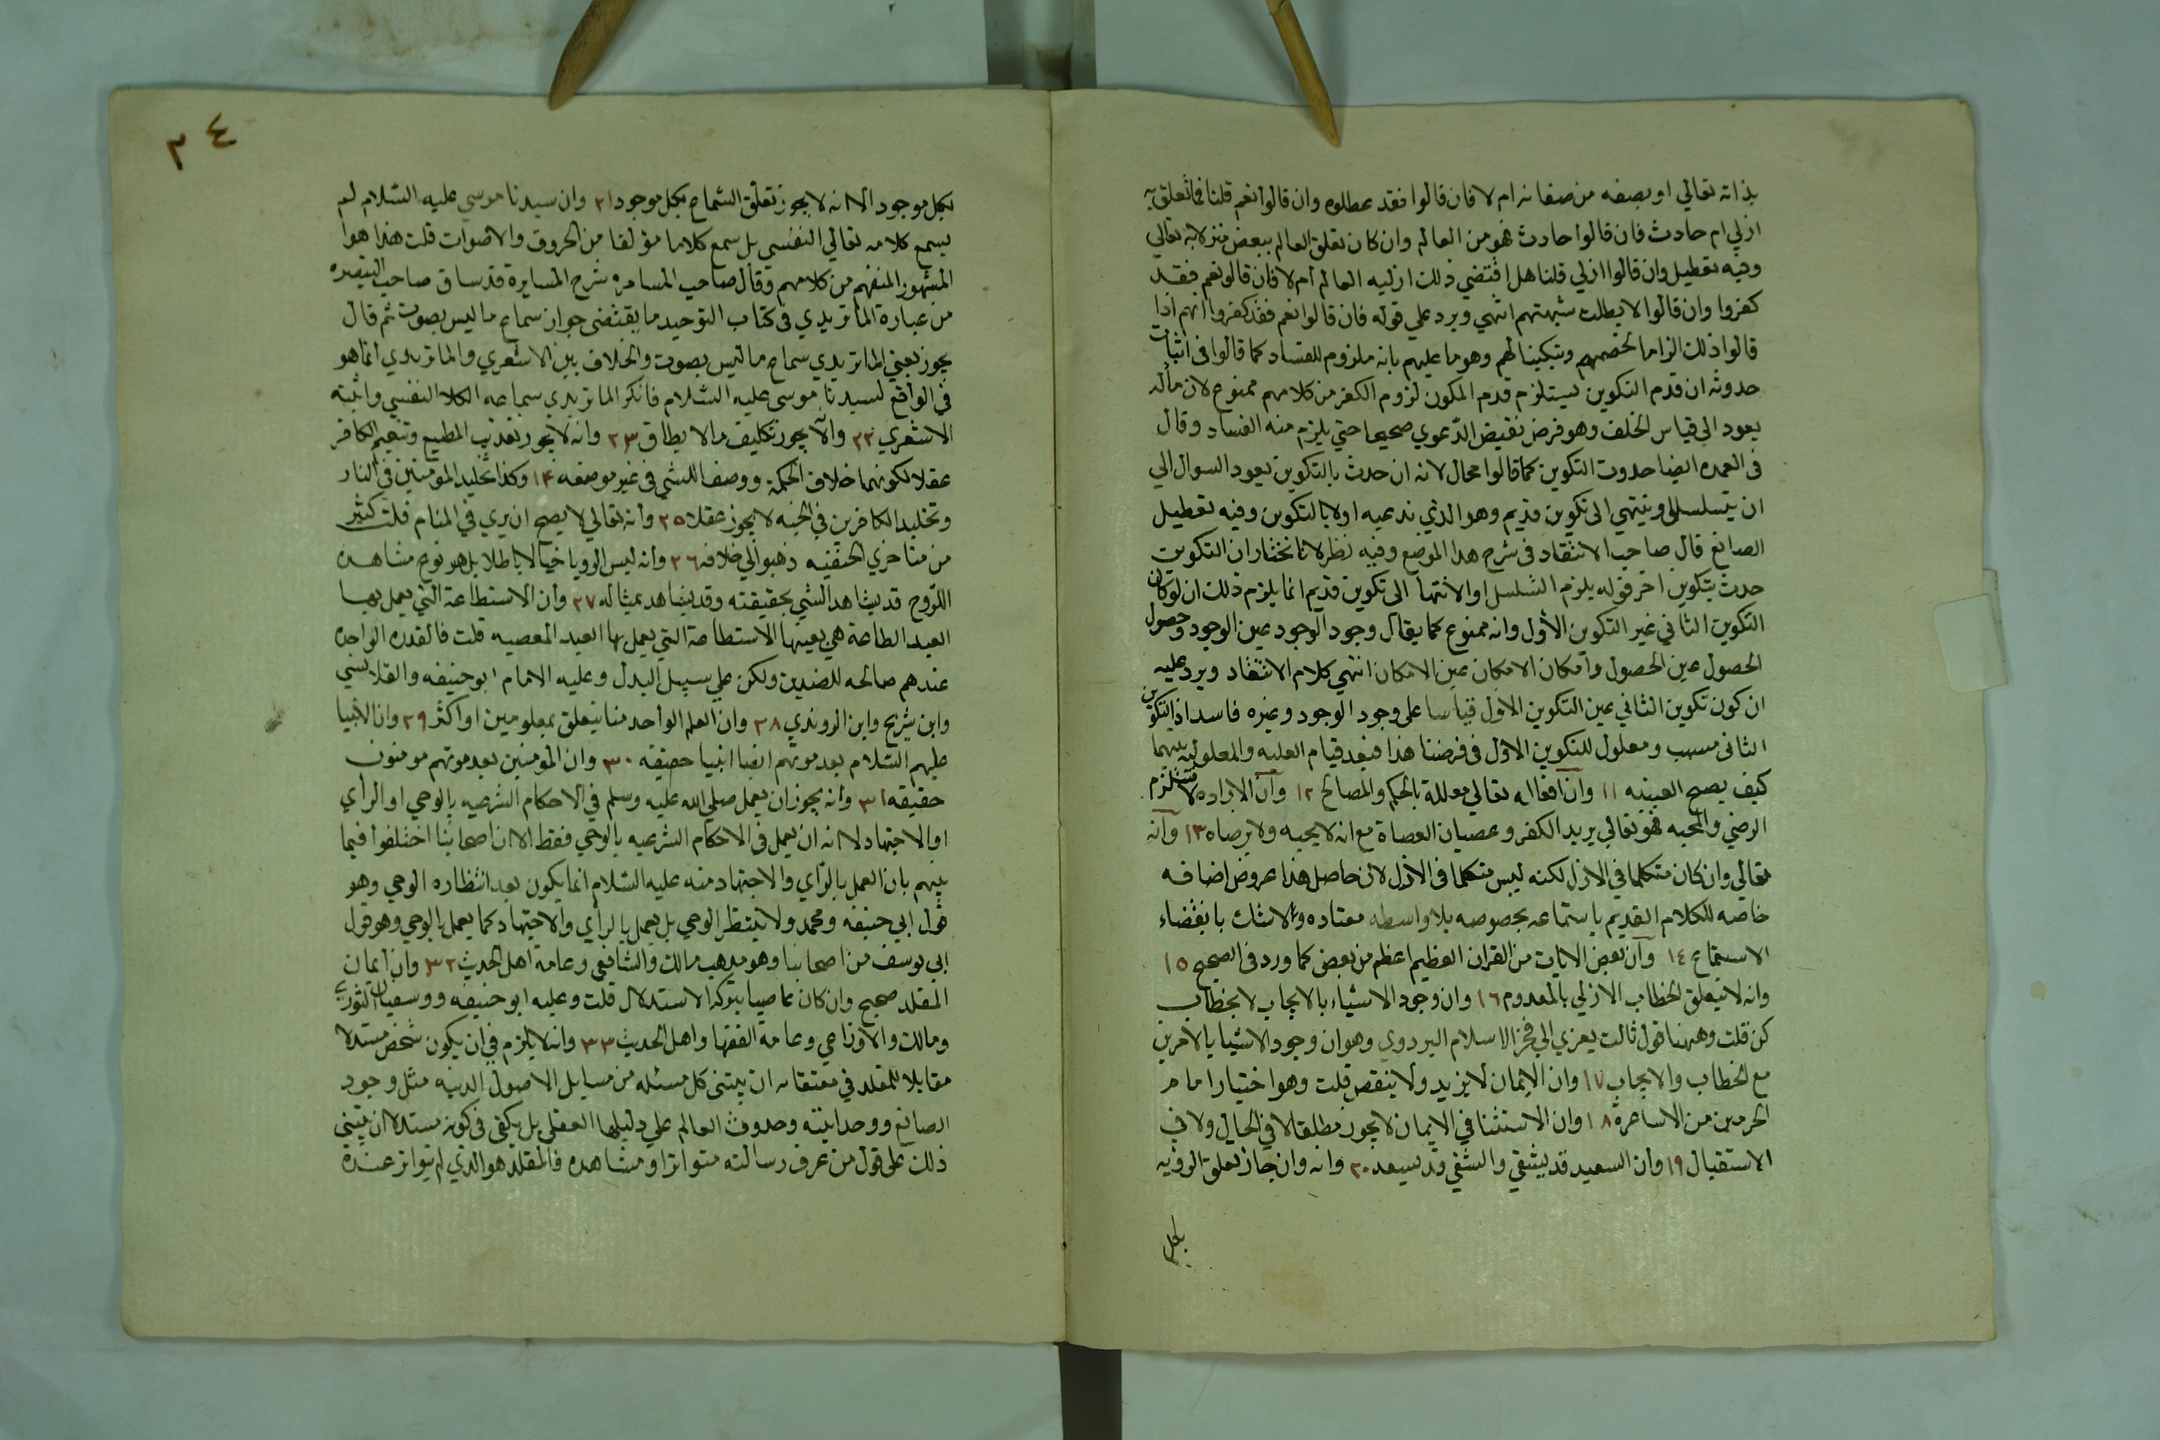 بذاته تعالي او بصفه من صفاته ام لا فان قالوا فقد عطلوه وان قالوا نعم قلنا فما تعلق به
ازلي ام حادث فان قالوا حادث فهو من العالم وان كان تعلق العالم ببعض منه لا به تعالي
وفيه تعطيل وان قالوا ازلي قلنا هل اقتضي ذلك ازليه العالم ام لا فان قالو نعم فقد
كفروا وان قالوا لا بطلت شبهتهم انتهي ويرد علي قوله فان قالوا نعم فقد كفروا انهم اذا
قالوا ذلك الزاما لخصمهم وتبكيتا لهم وهو ما عليهم بانه ملزوم للفساد كما قالوا في اثبات
حدوثه ان قدم التكوين يستلزم قدم المكون لزوم الكفر من كلامهم ممنوع لان مأله
يعود الي قياس الخلف وهو فرض نقيض الدعوي صحيحا حتي يلزم منه الفساد وقال
في العمده ايضا حدوث التكوين كما قالوا محال لانه ان حدث بالتكوين يعود السوال الي
ان يتسلسل او ينتهي الى تكوين قديم وهو الذي ندعيه او لا بالتكوين وفيه تعطيل
الصانع قال صاحب الانتقاد في شرح هذا الموضع وفيه نظر لانا نختار ان التكوين
حدث بتكوين اخر قوله يلزم التسلسل او الانتها الى تكوين قديم انما يلزم ذلك ان لو كان
التكوين الثاني غير التكوين الأول وانه ممنوع كما يقال وجود الوجود عين الوجود وحصول
الحصول عين الحصول وامكان الامكان عين الامكان انتهي كلام الانتقاد ويرد عليه
ان كون تكوين الثاني عين التكوين الاول قياسا على وجود الوجود وغيره فاسد اذ التكوين
الثاني مسبب ومعلول للتكوين الاول في فرضنا هذا فبعد قيام العليه والمعلوليه بينهما
كيف يصح العينيه ١١ وان افعاله تعالي معللة بالحكم والمصالح ١٢ وان الاراده لا تستلزم
الرضي والمحبه فهو تعالي يريد الكفر وعصيان العصاة مع انه لا يحبه ولا يرضاه ١٣ وانه
تعالي وان كان متكلما في الازل لكنه ليس متكلما في الازل لان حاصل هذا عروض اضافه
خاصه للكلام القديم باستماعه بخصوصه بلا واسطه معتاده ولا شك بانقضاء
الاستماع ١٤ وان بعض الايات من القران العظيم اعظم من بعض كما ورد في الصحيح ١٥
وانه لا يتعلق الخطاب الازلي بالمعدوم ١٦ وان وجود الاشياء بالايجاب لا بخطاب
كن قلت وههنا قول ثالث يعزي الي فخر الاسلام البزدوي وهو ان وجود الاشيا بالامرين
مع الخطاب والايجاب ١٧ وان الايمان لا يزيد ولا ينقص قلت وهو اختيار امام
الحرمين من الاشاعرة ١٨ وان الاستثنا في الايمان لا يجوز مطلقا لا في الحال ولا في
الاستقبال ١٩ وان السعيد قد يشقي والشقي قد يسعد ٢٠ وانه وان جاز تعلق الرؤيه
بكل
٣٤
بكل موجود الا انه لا يجوز تعلق السماع بكل موجود ٢١ وان سيدنا موسي عليه السلام لم
يسمع كلامه تعالي النفسي بل سمع كلاما مؤلفا من الحروف والاصوات قلت هذا هو
المشهور المتفهم من كلامهم وقال صاحب المسامره شرح المسايرة قد ساق صاحب التبصره
من عبارة الماتريدي في كتاب التوحيد ما يقتضي جواز سماع ما ليس بصوت ثم قال
يجوز يعني الماتريدي سماع ما ليس بصوت والخلاف بين الاشعري والماتريدي انما هو
في الواقع لسيدنا موسى عليه السلام فانكر الماتريدي سماعه الكلا النفسي واثبته
الاشعري ٢٢ والا يجوز تكليف ما لا يطاق ٢٣ وانه لا يجوز تعذيب المطيع وتنعيم الكافر
عقلا لكونهما خلاف الحكمة ووضعا للشي في غير موضعه ٢٤ وكذا تخليد المومنين في النار
وتخليد الكافرين في الجنه لا يجوز عقلا ٢٥ وانه تعالي لا يصح ان يري في المنام قلت كثير
من متاخري الحنفيه ذهبوا الي خلافه ٢٦ وانه ليس الرويا خيالا باطلا بل هو نوع مشاهده
الروح قد يشاهد الشي بحقيقته وقد يشاهد بمثاله ٢٧ وان الاستطاعة التي يعمل بها
العبد الطاعة هي بعينها الاستطاعة التي يعمل بها العبد المعصيه قلت فالقدره الواحده
عندهم صالحه للضدين ولكن علي سبيل البدل وعليه الامام ابو حنيفه والقلانسي
وابن شريح وابن الروندي ٢٨ وان العلم الواحد منا يتعلق بمعلومين او اكثر ٢٩ وان الانبيا
عليهم السلام بعد موتهم ايضا انبيا حقيقه ٣٠ وان المؤمنين بعد موتهم مومنون
حقيقه ٣١ وانه يجوز ان يعمل صلي الله عليه وسلم في الاحكام الشرعيه بالوحي او الرأي
او الاجتهاد لا انه ان يعمل في الاحكام الشرعيه بالوحي فقط الا ان اصحابنا اختلفوا فيما
بينهم بان العمل بالرأي والاجتهاد منه عليه السلام انما يكون بعد انتظاره الوحي وهو
قول ابي حنيفه ومحمد ولا ينتظر الوحي بل يعمل بالرأي والاجتهاد كما يعمل بالوحي وهو قول
ابي يوسف من اصحابنا وهو مذهب مالك والشافعي وعامة اهل الحديث ٣٢ وان ايمان
المقلد صحيح وان كان عاصيا بتركه الاستدلال قلت وعليه ابو حنيفه ووسفيان الثوري
ومالك والاوزاعي وعامة الفقها واهل الحديث ٣٣ وانه لا يلزم في ان يكون شخص مستدلا
مقابلا للمقلد في معتقاته ان يبتني كل مسئله من مسايل الاصول الدينيه مثل وجود
الصانع ووحدانيته وحدوث العالم علي دليلها العقلي بل يكفي في كونه مستدلا ان يبتني
ذلك على قول من عرف رسالته متواترا ومشاهده فالمقلد هو الذي لم يتواتر عنده